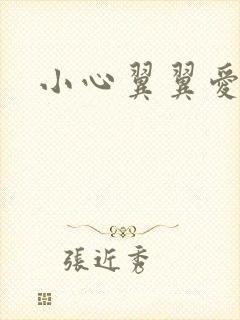 小心翼翼愛
張近秀